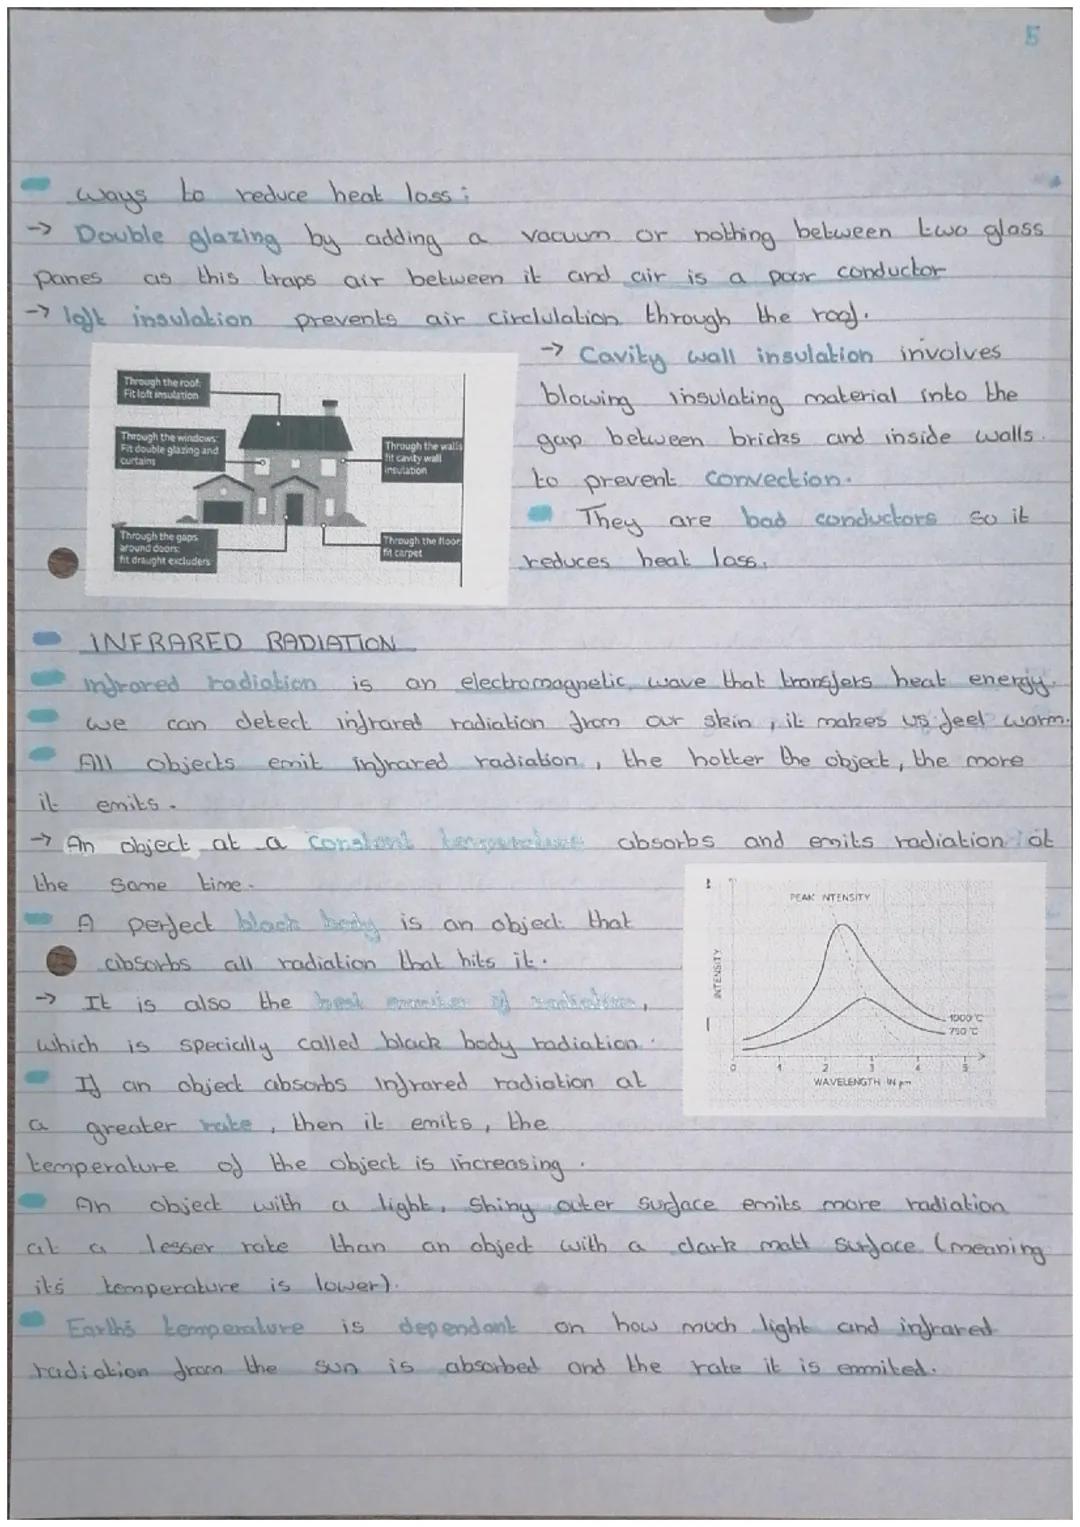 5
ways to reduce heat loss :
→ Double glazing by adding a vacuum or nothing between two glass
panes as this traps air between it and air is a poor conductor
→ loft insulation prevents air circlulation through the roof.
→ Cavity wall insulation involves
blowing insulating material into the
gap between bricks and inside walls
to prevent convection.
They are bad conductors so it
reduces heat loss.
Through the roof:
Fit loft insulation
Through the windows:
Fit double glazing and
curtains
Through the walls
fit cavity wall
insulation
Through the gaps
around doors:
fit draught excluders
Through the floor
fit carpet
INFRARED RADIATION
infrared radiation is an electromagnetic wave that transfers heat energy.
we can detect infrared radiation from our skin , it makes us feel warm.
All objects emit infrared radiation , the hotter the object , the more
it emits .
→ An object at a constant temperature absorbs and emits radiation at
the same time .
A perfect black body is an object that
absorbs all radiation that hits it .
→ It is also the best emmiter of radiation ,
which is specially called black body radiation .
If an object absorbs infrared radiation at
a greater rate , then it emits , the
temperature of the object is increasing .
An object with a light, shiny outer surface emits more radiation
at a lesser rate than an object with a dark matt surface (meaning
its temperature is lower).
Earths temperature is dependant on how much light and infrared
radiation from the sun is absorbed and the rate it is emmited.
PEAK INTENSITY
INTENSITY
1000°C
750°C
0 1 2 3 4 5
WAVELENGTH IN μm